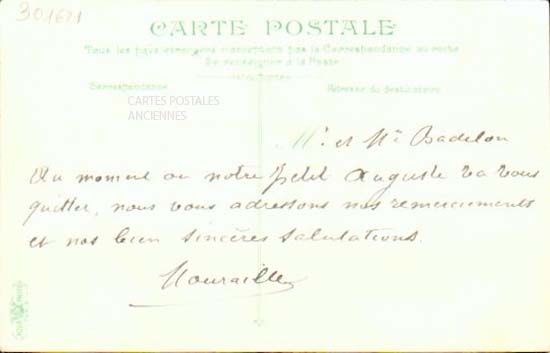 301671
CARTE POSTALE
Tous les pays étrangers n'acceptent pas la Correspondance au recto
Se renseigner à la Poste
Correspondance
Adresse du destinataire
CARTES POSTALES
ANCIENNES
Mr et Me Badelon
Au moment ou notre petit Auguste va vous
quitter, nous vous adressons nos remerciements
et nos bien sincères salutations.